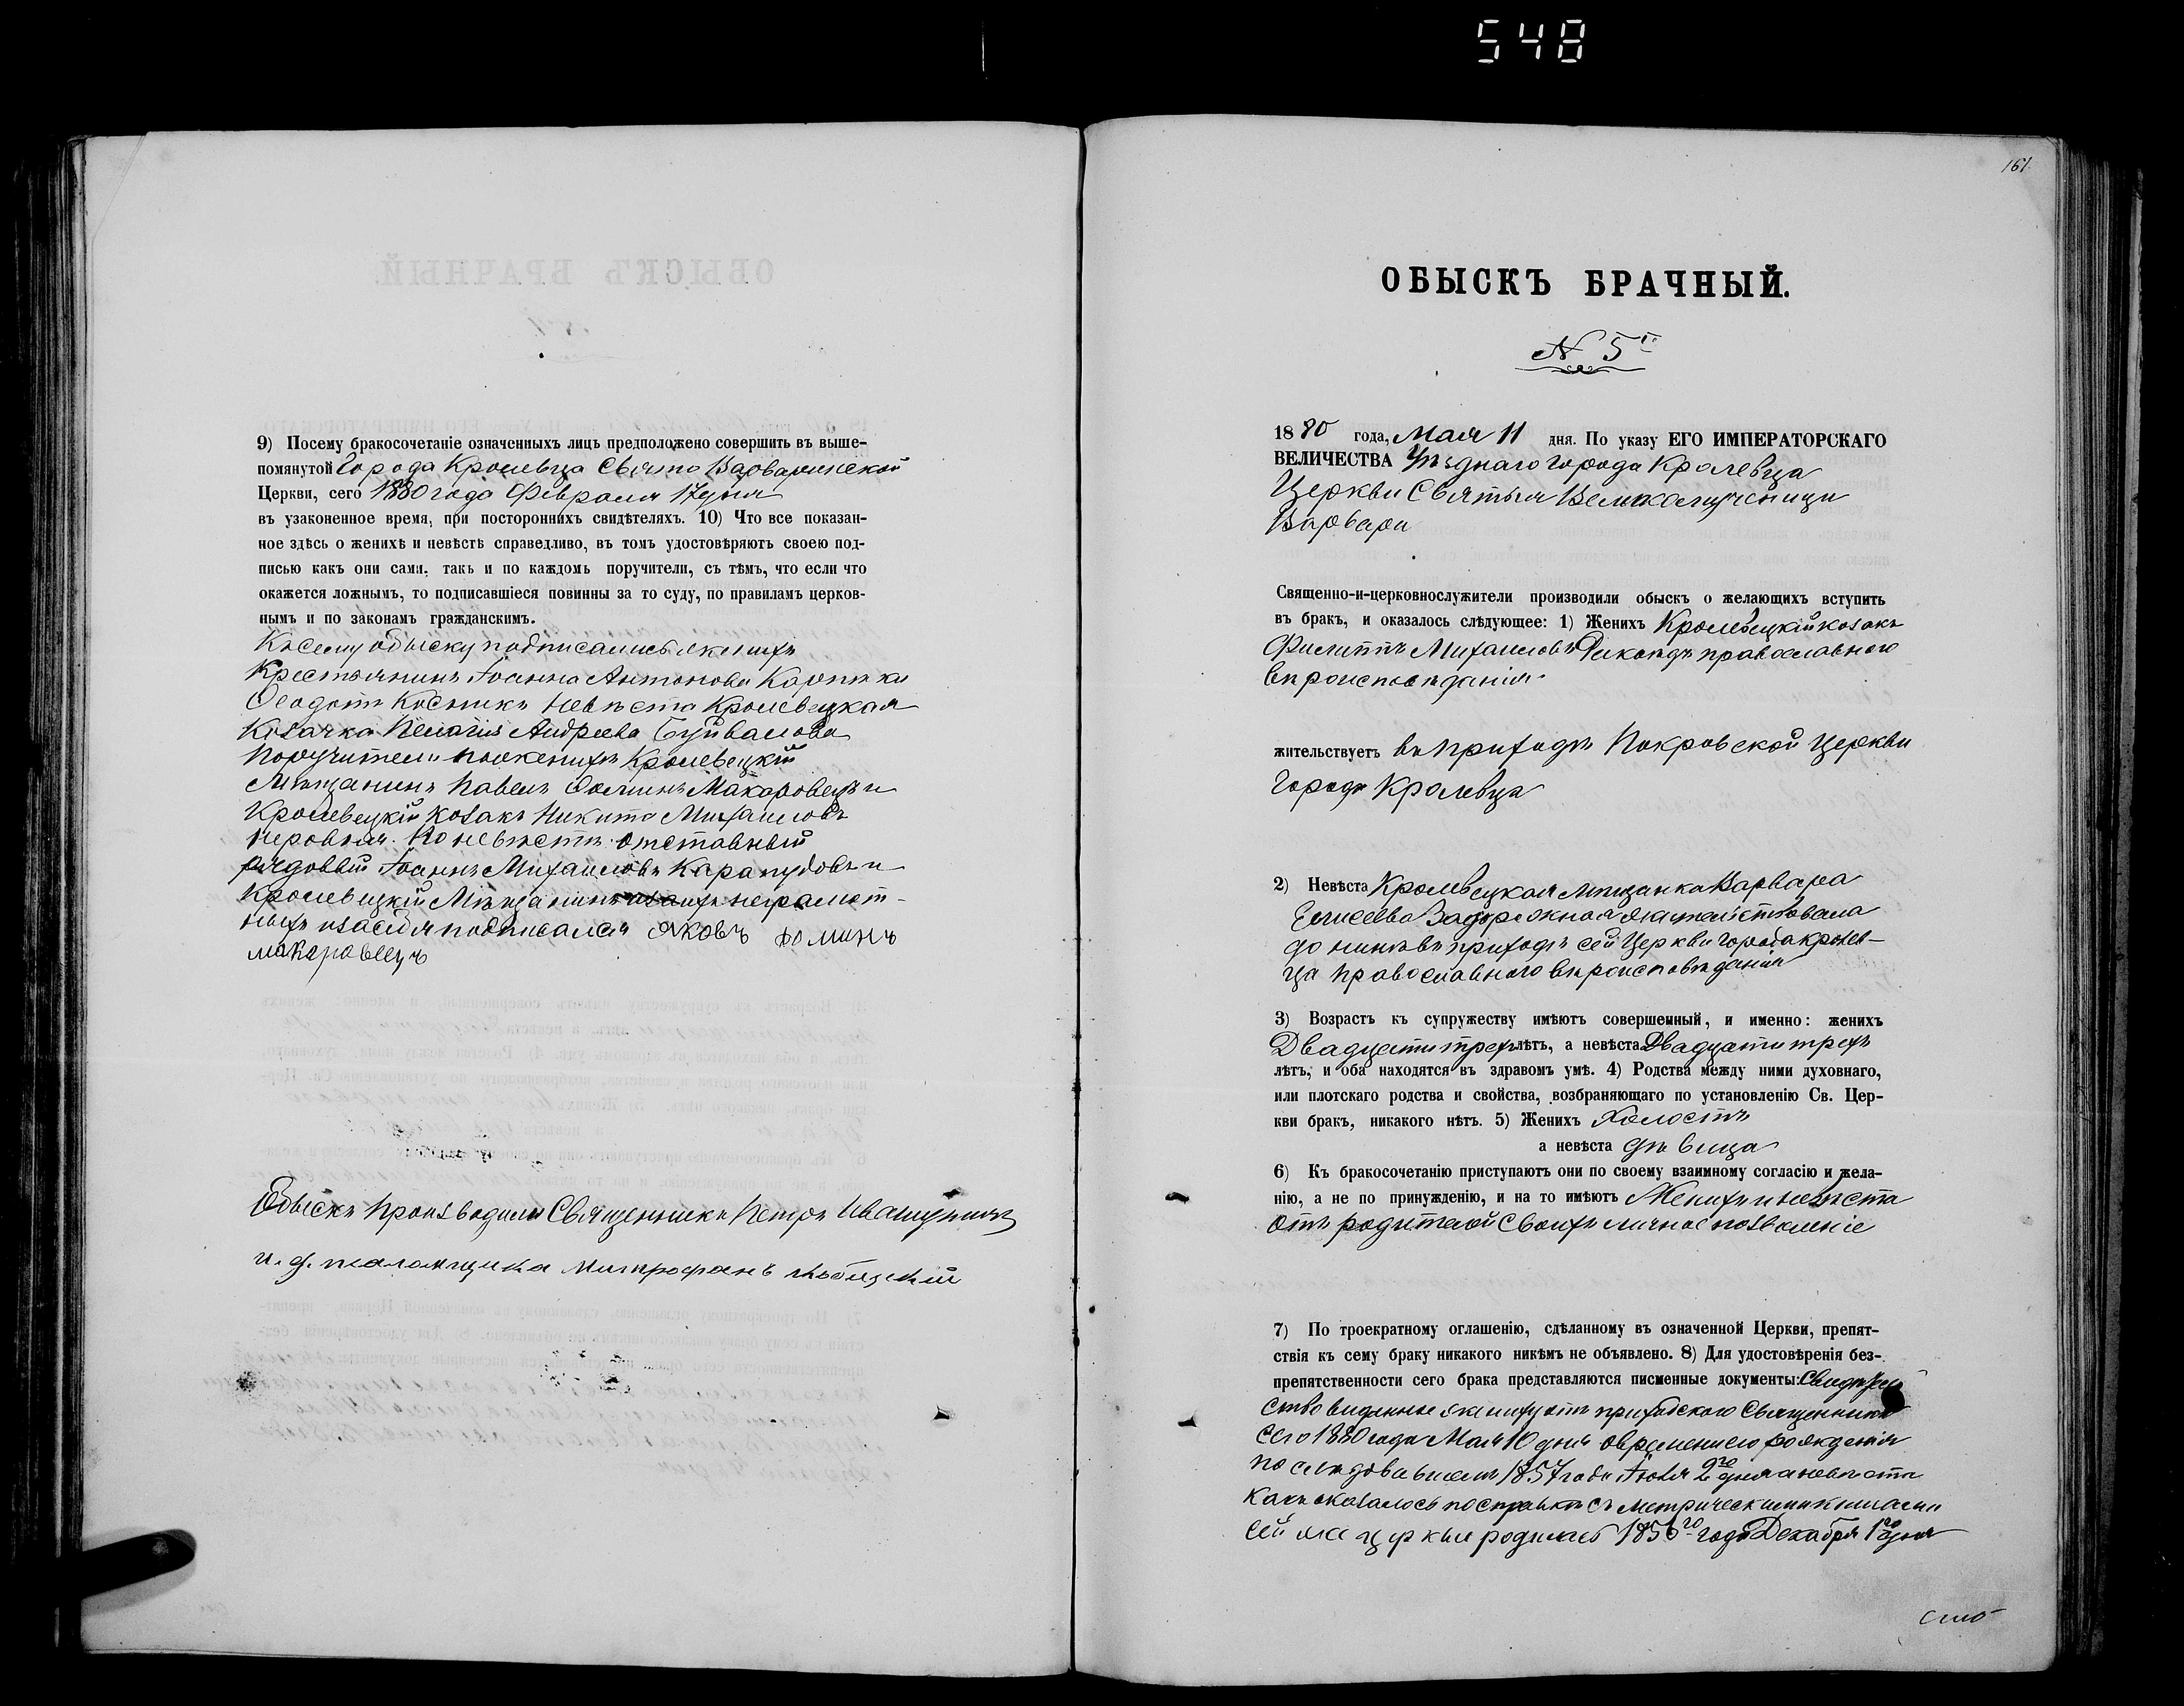 548
9) Посему бракосочетаніе означенныхъ лицъ предположено совершить въ выше-
помянутой Города Кролевца Свято Варваринской
Церкви, сего 1880 года Февраля 17 дня
въ узаконенное время, при постороннихъ свидѣтеляхъ. 10) Что все показан-
ное здѣсь о женихѣ и невѣстѣ справедливо, въ томъ удостовѣряютъ своею под-
писью какъ они сами, такъ и по каждомъ поручители, съ тѣмъ, что если что
окажется ложнымъ, то подписавшіеся повинны за то суду, по правиламъ церков-
нымъ и по законамъ гражданскимъ.
Къ сему обыску подписались женихъ
Крестьянинъ Іоанна Антонова
Ѳеодотъ Косникъ Невѣста Кролевецкая
Козачка Пелагія Андреева Буйвалова
Поручители по женихѣ Кролевецкій
Мѣщанинъ Павелъ Ѳоминъ Макаровецъ и
Кролевецкій Козакъ Никита Михаиловъ
По невѣстѣ отставный
рядовый Іоаннъ Михаиловъ и
Кролевецкій Мѣщанинъ неграмот-
ныхъ и за себя подписался Яковъ Фоминъ
макаравецъ
Обыскъ Производили Священникъ Петръ
и. д. псаломщика Митрофанъ
161
ОБЫСКЪ БРАЧНЫЙ.
№ 5й
1880 года, Мая 11 дня. По указу ЕГО ИМПЕРАТОРСКАГО
ВЕЛИЧЕСТВА Уѣзднаго города Кролевца
Церкви Святыя Великомученици
Варвари
Священно-и-церковнослужители производили обыскъ о желающихъ вступить
въ бракъ, и оказалось слѣдующее: 1) Женихъ Кролевецкій козакъ
Филиппъ Михаиловъ православного
вѣроисповѣданія
жительствуетъ въ приходѣ Покровской Церкви
Города Кролевца
2) Невѣста Кролевецкая мѣщанка Варвара
Елисеева Задорожная жительствовала
до нинѣ въ приходѣ сей Церкви города кролев-
ца православного вѣроисповѣданія
3) Возрастъ къ супружеству имѣютъ совершенный, и именно: женихъ
Двадцати трехъ лѣтъ, а невѣста Двадцати трехъ
лѣтъ, и оба находятся въ здравомъ умѣ. 4) Родства между ними духовнаго,
или плотскаго родства и свойства, возбраняющаго по установленію Св. Цер-
кви бракъ, никакого нѣтъ. 5) Женихъ Холостъ
а невѣста дѣвица
6) Къ бракосочетанію приступаютъ они по своему взаимному согласію и жела-
нію, а не по принужденію, и на то имѣютъ Женихъ и невѣста
отъ родителей своихъ личное позволеніе
7) По троекратному оглашенію, сдѣланному въ означенной Церкви, препят-
ствія къ сему браку никакого никѣмъ не объявлено. 8) Для удостовѣренія без-
препятственности сего брака представляются писменные документы: Свидѣтель
ство виданное жениху отъ приходского Священника
сего 1880 года Мая 10 дня о времени его рожденія
последовавшемъ 1857 года Іюля 2го дня а невѣста
какъ оказалось по справкѣ съ метрическими книгами
сей же церкви родилась 1856го года Декабря 1го дня